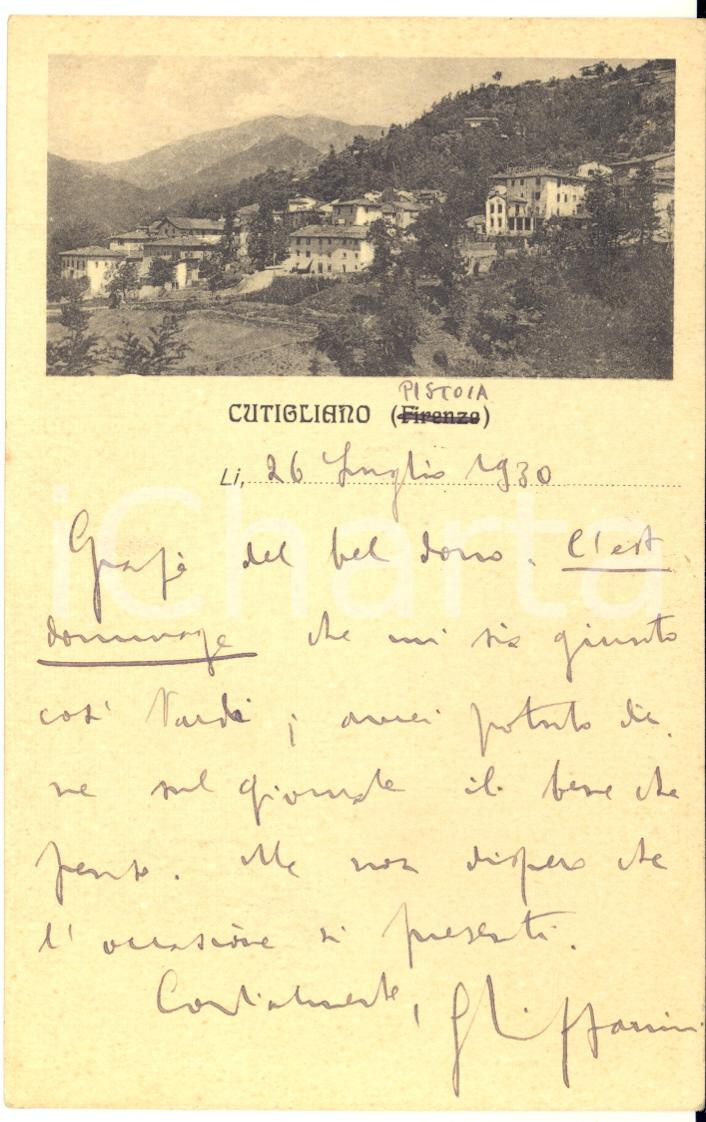 PISTOIA
CUTIGLIANO (Firenze)
Li, 26 Luglio 1930
Grazie del bel dono. C'est
dommage che mi sia giunto
così tardi; avrei potuto di
re sul giornale il bene che
penso. Ma non dispero che
l'occasione si presenti.
Cordialmente,
iCharta